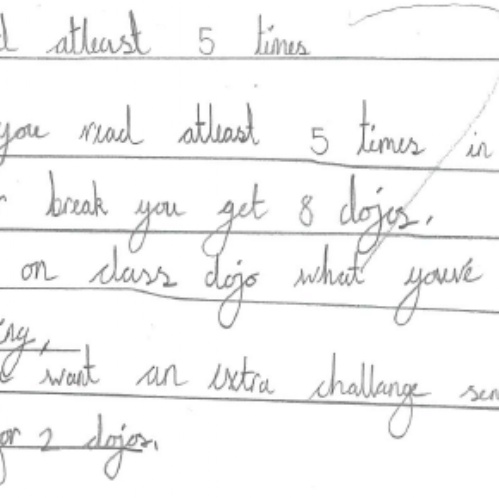 atleast 5 times
you read atleast 5 times in
break you get 8 dojos.
on class dojo what youve
ing,
want an extra challange sen
or 2 dojos.